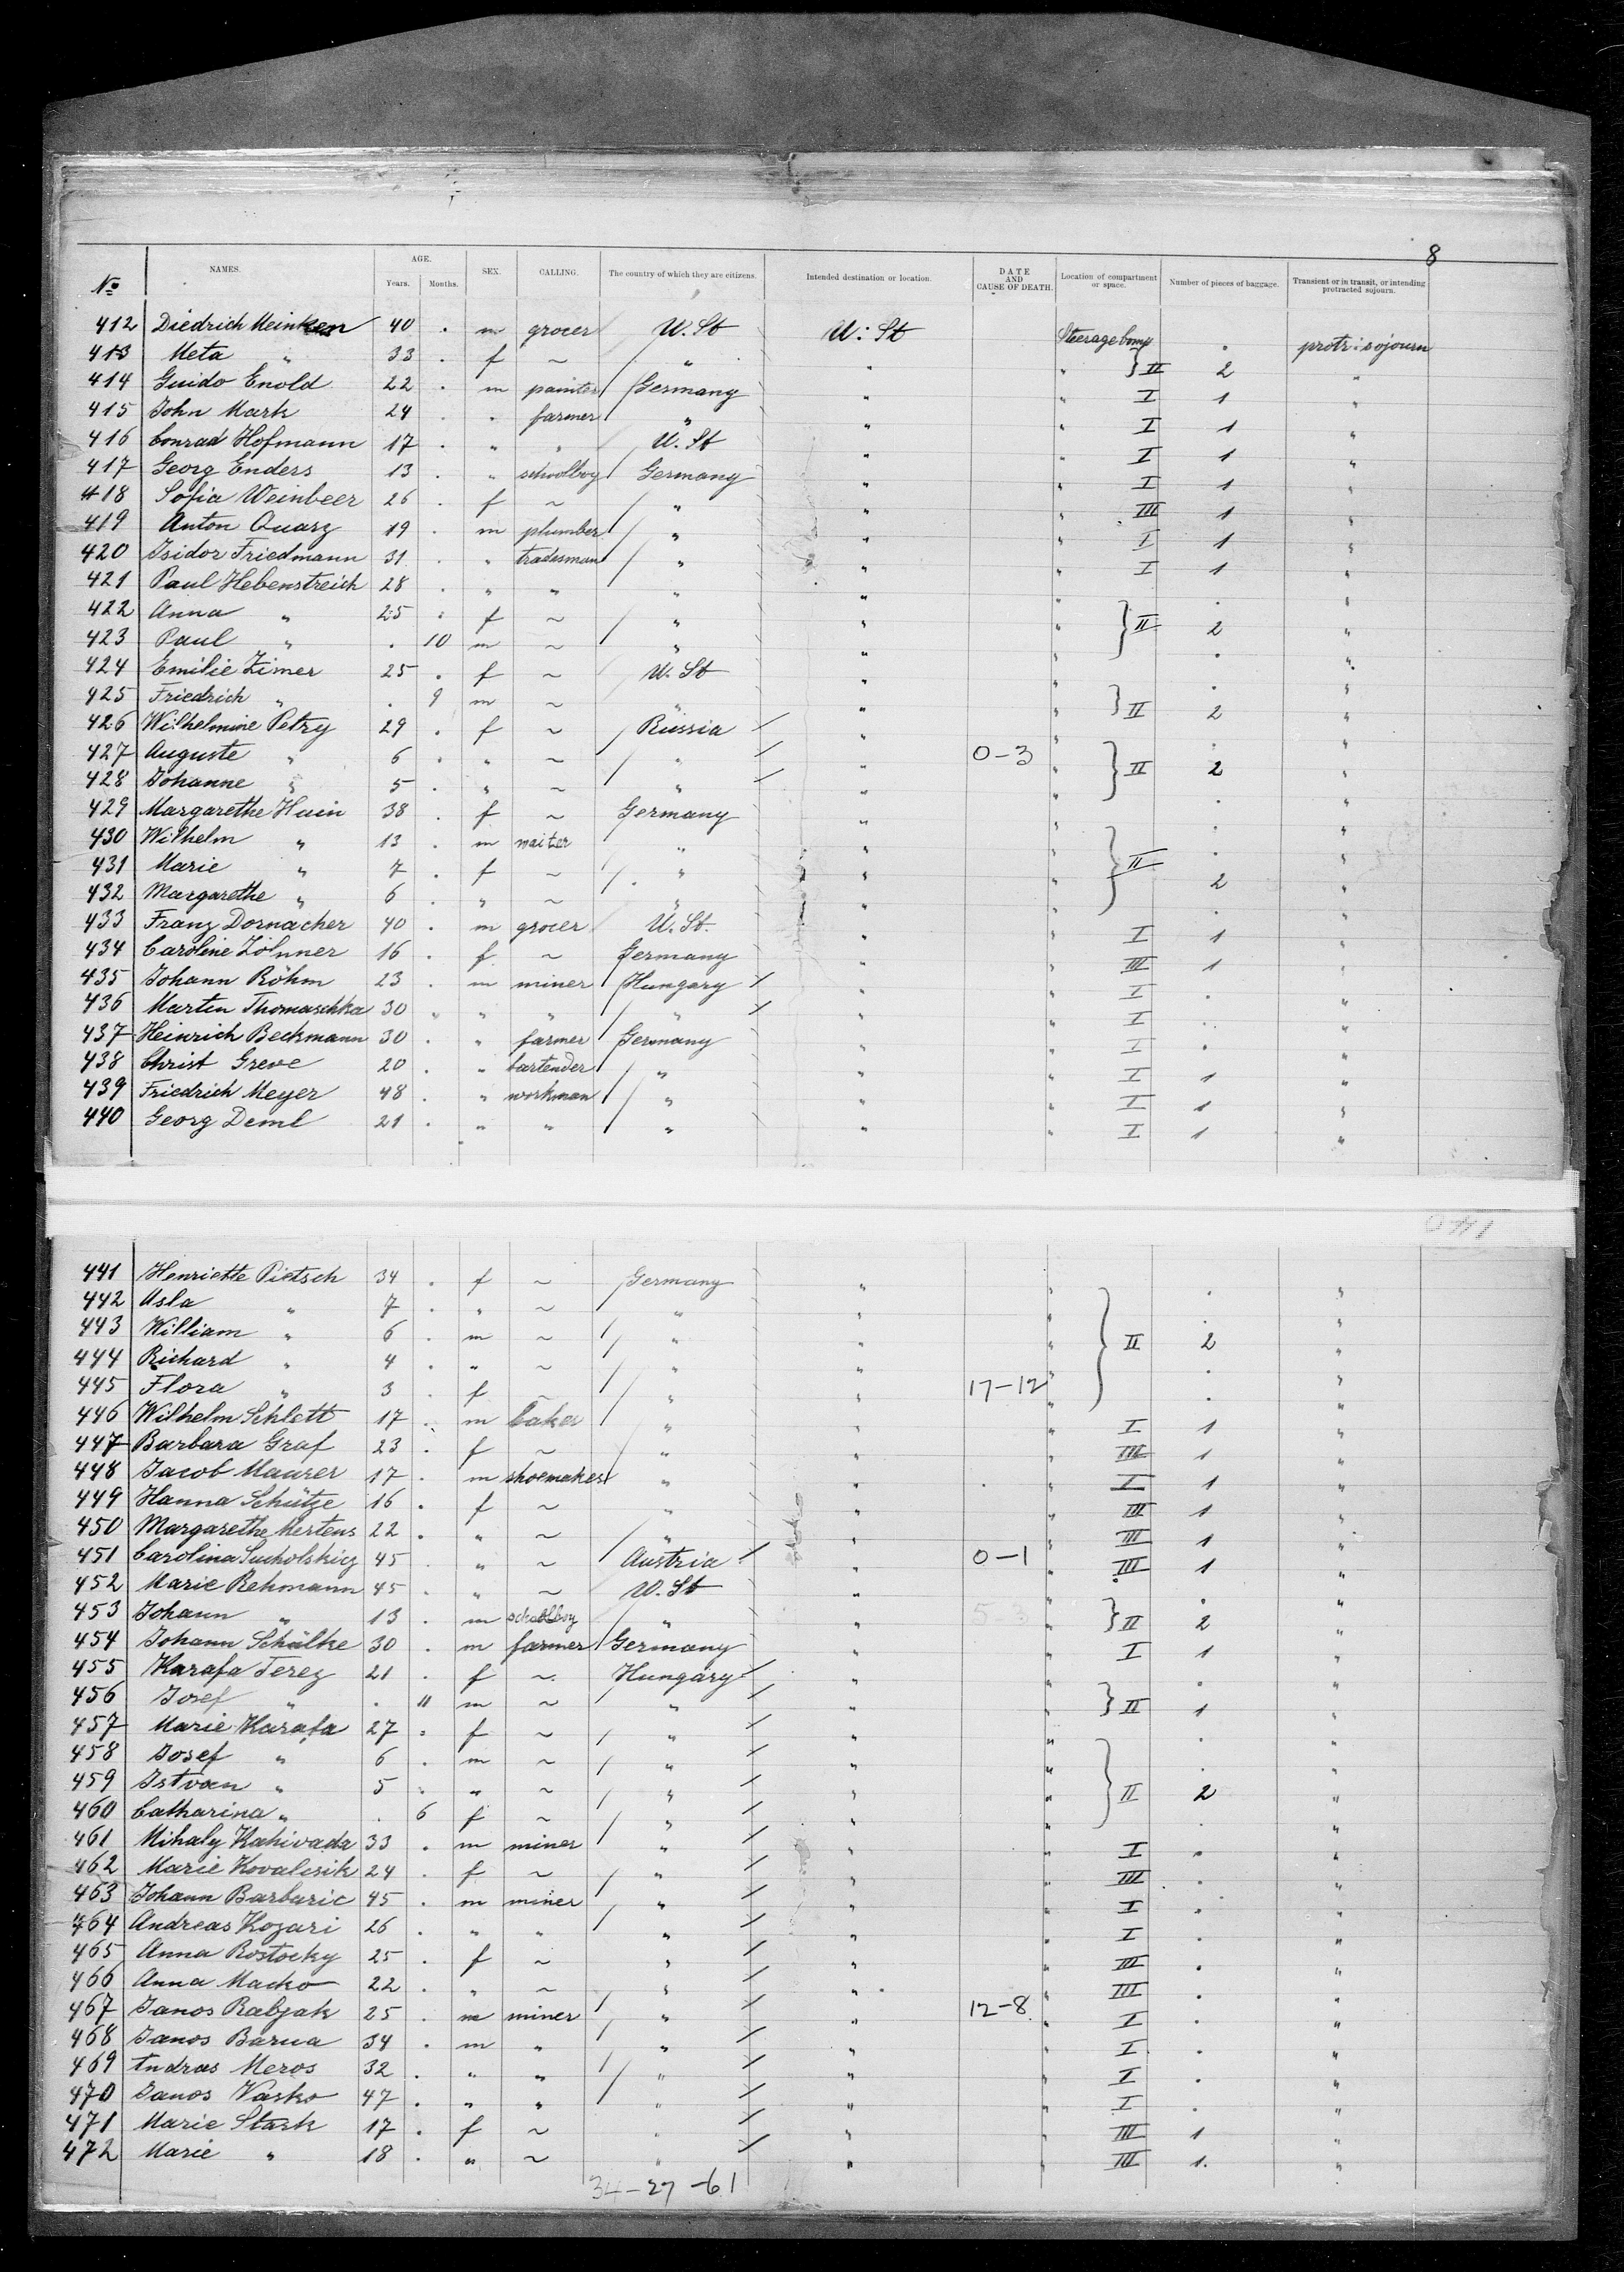 8
No NAMES. AGE. Years. Months. SEX. CALLING. The country of which they are citizens. Intended destination or location. DATE AND CAUSE OF DEATH. Location of compartment or space. Number of pieces of baggage. Transient or in transit, or intending protracted sojourn.
412 Diedrich Meinken 40 . m grocer U. St U: St Steerage comp . protr: sojourn
413 Meta " 33 . f ~ " " " } II 2 "
414 Guido Enold 22 . m painter Germany " " I 1 "
415 John Mark 24 . " farmer " " " I 1 "
416 Conrad Hofmann 17 . " " U. St " " I 1 "
417 Georg Enders 13 . " schoolboy Germany " " I 1 "
418 Sofia Weinbeer 26 . f ~ " " " III 1 "
419 Anton Quarz 19 . m plumber " " " I 1 "
420 Isidor Friedmann 31 . " tradesman " " " I 1 "
421 Paul Hebenstreich 28 . " " " " " . "
422 Anna " 25 . f ~ " " " } II 2 "
423 Paul " . 10 m ~ " " " . "
424 Emilie Zimer 25 . f ~ U. St " " . "
425 Friedrich " . 9 m ~ " " " } II 2 "
426 Wilhelmine Petry 29 . f ~ Russia / " " . "
427 Auguste " 6 . " ~ " / " 0-3 " } II 2 "
428 Johanne " 5 . " ~ " / " " . "
429 Margarethe Huin 38 . f ~ Germany " " . "
430 Wilhelm " 13 . m waiter " " " } II . "
431 Marie " 7 . f ~ " " " 2 "
432 Margarethe " 6 . " ~ " " " . "
433 Franz Dornacher 40 . m grocer U. St. " " I 1 "
434 Caroline Zölnner 16 . f ~ Germany " " III 1 "
435 Johann Röhm 23 . m miner Hungary / " " I . "
436 Martin Thomaschka 30 " " " " / " " I . "
437 Heinrich Beckmann 30 . " farmer Germany " " I . "
438 Christ Greve 20 . " bartender " " " I 1 "
439 Friedrich Meyer 48 . " workman " " " I 1 "
440 Georg Deml 21 . " " " " " I 1 "
441 Henriette Pietsch 34 . f ~ Germany " " . "
442 Asla " 7 . " ~ " " " . "
443 William " 6 . m ~ " " " } II 2 "
444 Richard " 4 . " ~ " " " . "
445 Flora " 3 . f ~ " " 17-12 " . "
446 Wilhelm Schlett 17 . m baker " " " I 1 "
447 Barbara Graf 23 . f ~ " " " III 1 "
448 Jacob Maurer 17 . m shoemaker " " " I 1 "
449 Hanna Schütze 16 . f ~ " " " III 1 "
450 Margarethe Mertens 22 . " ~ " " " III 1 "
451 Carolina Sucholskicz 45 . " ~ Austria / " 0-1 " III 1 "
452 Marie Rehmann 45 . " ~ U. St " " . "
453 Johann " 13 . m schoolboy " " " } II 2 "
454 Johann Schälke 30 . m farmer Germany " " I 1 "
455 Karafa Terez 21 . f ~ Hungary / " " . "
456 Josef " . 11 m ~ " / " " } II 1 "
457 Marie Karafa 27 . f ~ " / " " . "
458 Josef " 6 . m ~ " / " " . "
459 Istvan " 5 . " ~ " / " " } II 2 "
460 Catharina " . 6 f ~ " / " " . "
461 Mihaly Kahivada 33 . m miner " / " " I . "
462 Marie Kovalcsik 24 . f ~ " / " " III . "
463 Johann Barbaric 45 . m miner " / " " I . "
464 Andreas Kozari 26 . " " " / " " I . "
465 Anna Rostocky 25 . f ~ " / " " III . "
466 Anna Macko 22 . " ~ " / " " III . "
467 Janos Rabjak 25 . m miner " / " 12-8 " I . "
468 Janos Barna 34 . m " " / " " I . "
469 Andras Meros 32 . " " " / " " I . "
470 Janos Vasko 47 . " " " / " " I . "
471 Marie Stark 17 . f ~ " / " " III 1 "
472 Marie " 18 . " ~ " / " " III 1. "
34-27-61